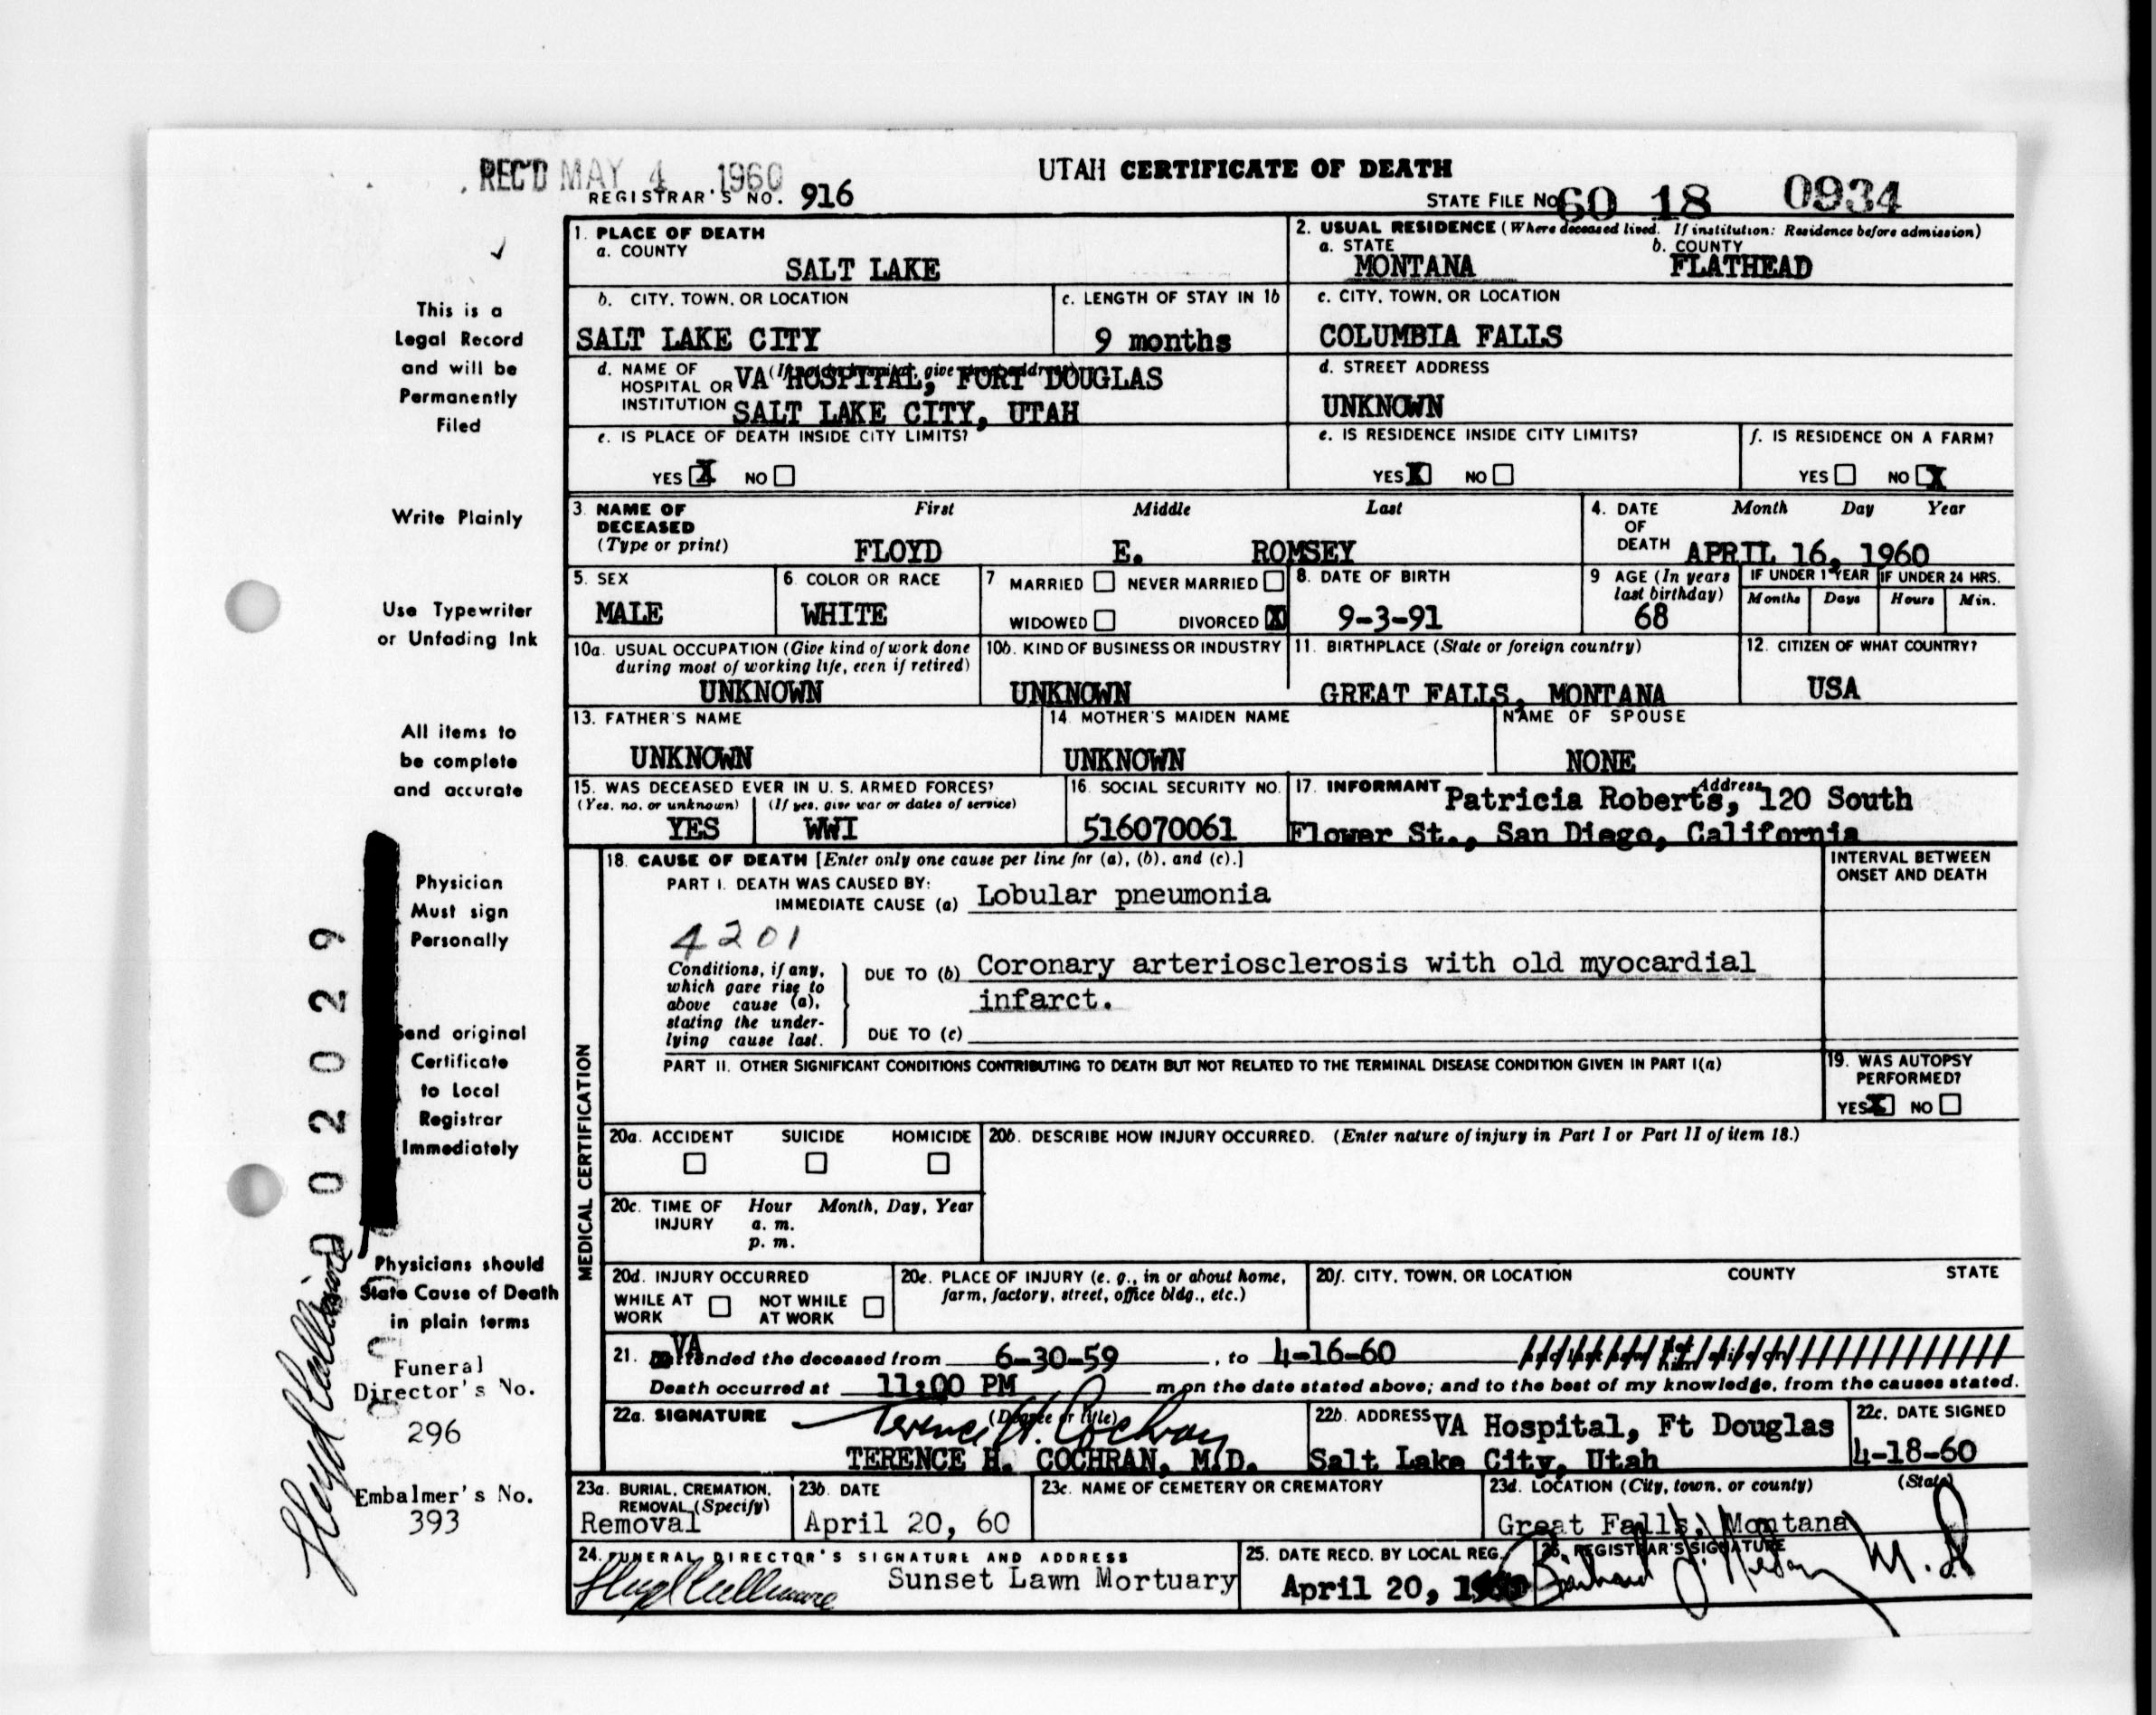 REC'D MAY 4 1960
UTAH CERTIFICATE OF DEATH
REGISTRAR'S NO. 916
STATE FILE NO. 60 18 0934
1. PLACE OF DEATH
a. COUNTY
SALT LAKE
2. USUAL RESIDENCE (Where deceased lived. If institution: Residence before admission)
a. STATE b. COUNTY
MONTANA FLATHEAD
b. CITY, TOWN, OR LOCATION
SALT LAKE CITY
c. LENGTH OF STAY IN 1b
9 months
c. CITY, TOWN, OR LOCATION
COLUMBIA FALLS
d. NAME OF HOSPITAL OR INSTITUTION
VA HOSPITAL, FORT DOUGLAS
SALT LAKE CITY, UTAH
d. STREET ADDRESS
UNKNOWN
e. IS PLACE OF DEATH INSIDE CITY LIMITS?
YES X NO
e. IS RESIDENCE INSIDE CITY LIMITS?
YES X NO
f. IS RESIDENCE ON A FARM?
YES NO X
3. NAME OF DECEASED
(Type or print)
First Middle Last
FLOYD E. ROMSEY
4. DATE OF DEATH
Month Day Year
APRIL 16, 1960
5. SEX
MALE
6. COLOR OR RACE
WHITE
7 MARRIED NEVER MARRIED
WIDOWED DIVORCED X
8. DATE OF BIRTH
9-3-91
9 AGE (In years last birthday)
68
IF UNDER 1 YEAR IF UNDER 24 HRS.
Months Days Hours Min.
10a. USUAL OCCUPATION (Give kind of work done during most of working life, even if retired)
UNKNOWN
10b. KIND OF BUSINESS OR INDUSTRY
UNKNOWN
11. BIRTHPLACE (State or foreign country)
GREAT FALLS, MONTANA
12. CITIZEN OF WHAT COUNTRY?
USA
13. FATHER'S NAME
UNKNOWN
14. MOTHER'S MAIDEN NAME
UNKNOWN
NAME OF SPOUSE
NONE
15. WAS DECEASED EVER IN U. S. ARMED FORCES?
(Yes, no, or unknown) (If yes, give war or dates of service)
YES WWI
16. SOCIAL SECURITY NO.
516070061
17. INFORMANT Address
Patricia Roberts, 120 South
Flower St., San Diego, California
MEDICAL CERTIFICATION
18. CAUSE OF DEATH [Enter only one cause per line for (a), (b), and (c).]
INTERVAL BETWEEN ONSET AND DEATH
PART I. DEATH WAS CAUSED BY:
IMMEDIATE CAUSE (a) Lobular pneumonia
4201
Conditions, if any, which gave rise to above cause (a), stating the underlying cause last.
DUE TO (b) Coronary arteriosclerosis with old myocardial
infarct.
DUE TO (c)
PART II. OTHER SIGNIFICANT CONDITIONS CONTRIBUTING TO DEATH BUT NOT RELATED TO THE TERMINAL DISEASE CONDITION GIVEN IN PART I(a)
19. WAS AUTOPSY PERFORMED?
YES X NO
20a. ACCIDENT SUICIDE HOMICIDE
20b. DESCRIBE HOW INJURY OCCURRED. (Enter nature of injury in Part I or Part II of item 18.)
20c. TIME OF INJURY Hour Month, Day, Year
a. m.
p. m.
20d. INJURY OCCURRED
WHILE AT WORK NOT WHILE AT WORK
20e. PLACE OF INJURY (e. g., in or about home, farm, factory, street, office bldg., etc.)
20f. CITY, TOWN, OR LOCATION COUNTY STATE
21. VA attended the deceased from 6-30-59, to 4-16-60
Death occurred at 11:00 PM m on the date stated above; and to the best of my knowledge, from the causes stated.
22a. SIGNATURE (Degree or title)
Terence H. Cochran
TERENCE H. COCHRAN, M.D.
22b. ADDRESS VA Hospital, Ft Douglas
Salt Lake City, Utah
22c. DATE SIGNED
4-18-60
23a. BURIAL, CREMATION, REMOVAL (Specify)
Removal
23b. DATE
April 20, 60
23c. NAME OF CEMETERY OR CREMATORY
23d. LOCATION (City, town, or county) (State)
Great Falls, Montana
24. FUNERAL DIRECTOR'S SIGNATURE AND ADDRESS
Sunset Lawn Mortuary
25. DATE RECD. BY LOCAL REG.
April 20,
26. REGISTRAR'S SIGNATURE
M.D
This is a
Legal Record
and will be
Permanently
Filed
Write Plainly
Use Typewriter
or Unfading Ink
All items to
be complete
and accurate
Physician
Must sign
Personally
Send original
Certificate
to Local
Registrar
Immediately
Physicians should
State Cause of Death
in plain terms
Funeral
Director's No.
296
Embalmer's No.
393